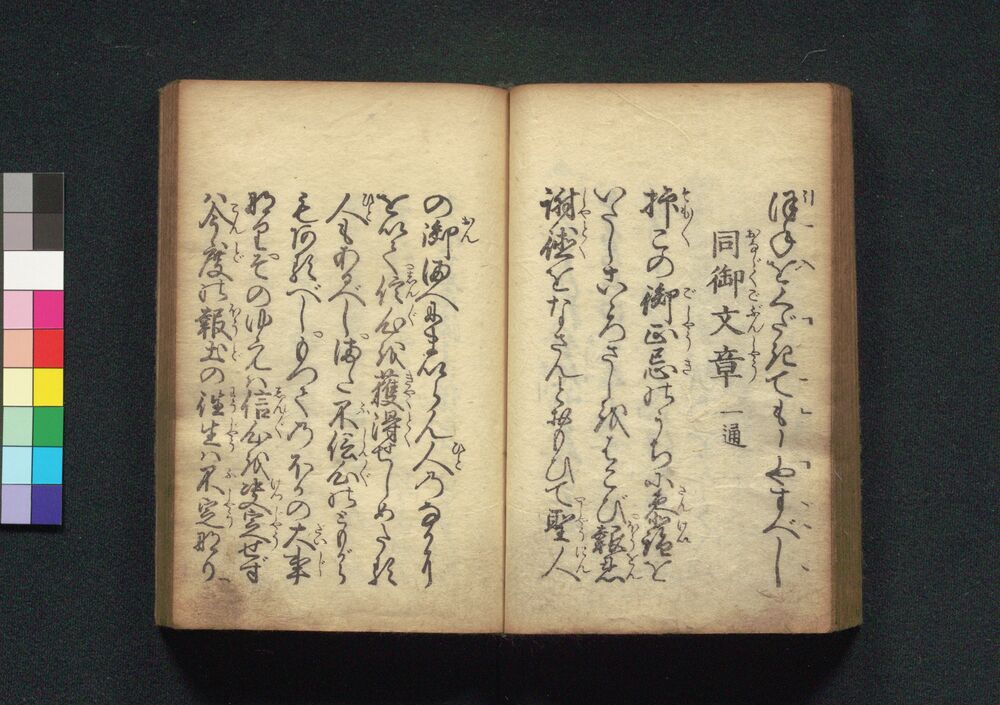 ほねをくだきてもしやすべし
同御文章 一通
抑この御正忌のうちに参詣を
いたしこゝろざしをはこび報恩
謝徳をなさんとおもひて聖人
の御まへにまいらん人のなかに
をいて信心を獲得せしめたる
人もあるべしまた不信心のともがら
もあるべしもつてのほかの大事
なりそのゆへは信心を決定せず
は今度の報土の往生は不定なり